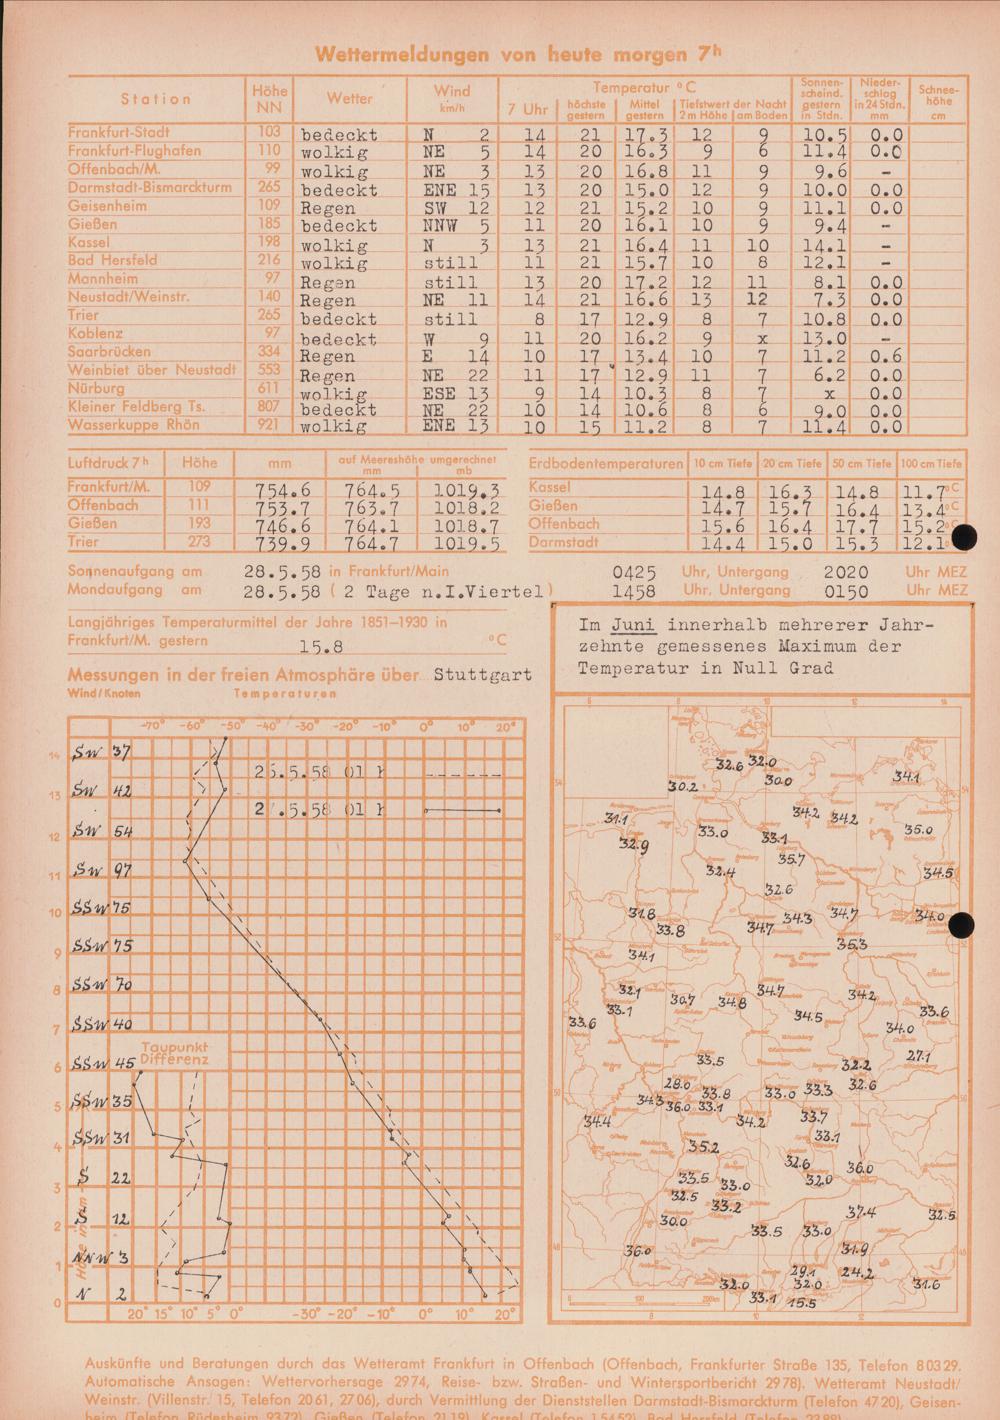 Wettermeldungen von heute morgen 7h
Station Höhe NN Wetter Wind km/h Temperatur °C 7 Uhr höchste gestern Mittel gestern Tiefstwert der Nacht 2 m Höhe am Boden Sonnen-scheind. gestern in Stdn. Nieder-schlag in 24 Stdn. mm Schnee-höhe cm
Frankfurt-Stadt 103 bedeckt N 2 14 21 17.3 12 9 10.5 0.0
Frankfurt-Flughafen 110 wolkig NE 5 14 20 16.3 9 6 11.4 0.0
Offenbach/M. 99 wolkig NE 3 13 20 16.8 11 9 9.6 -
Darmstadt-Bismarckturm 265 bedeckt ENE 15 13 20 15.0 12 9 10.0 0.0
Geisenheim 109 Regen SW 12 12 21 15.2 10 9 11.1 0.0
Gießen 185 bedeckt NNW 5 11 20 16.1 10 9 9.4 -
Kassel 198 wolkig N 3 13 21 16.4 11 10 14.1 -
Bad Hersfeld 216 wolkig still 11 21 15.7 10 8 12.1 -
Mannheim 97 Regen still 13 20 17.2 12 11 8.1 0.0
Neustadt/Weinstr. 140 Regen NE 11 14 21 16.6 13 12 7.3 0.0
Trier 265 bedeckt still 8 17 12.9 8 7 10.8 0.0
Koblenz 97 bedeckt W 9 11 20 16.2 9 x 13.0 -
Saarbrücken 334 Regen E 14 10 17 13.4 10 7 11.2 0.6
Weinbiet über Neustadt 553 Regen NE 22 11 17 12.9 11 7 6.2 0.0
Nürburg 611 wolkig ESE 13 9 14 10.3 8 7 x 0.0
Kleiner Feldberg Ts. 807 bedeckt NE 22 10 14 10.6 8 6 9.0 0.0
Wasserkuppe Rhön 921 wolkig ENE 13 10 15 11.2 8 7 11.4 0.0
Luftdruck 7h Höhe mm auf Meereshöhe umgerechnet mm mb
Frankfurt/M. 109 754.6 764.5 1019.3
Offenbach 111 753.7 763.7 1018.2
Gießen 193 746.6 764.1 1018.7
Trier 273 739.9 764.7 1019.5
Erdbodentemperaturen 10 cm Tiefe 20 cm Tiefe 50 cm Tiefe 100 cm Tiefe
Kassel 14.8 16.3 14.8 11.7 °C
Gießen 14.7 15.7 16.4 13.4 °C
Offenbach 15.6 16.4 17.7 15.2 °C
Darmstadt 14.4 15.0 15.3 12.1
Sonnenaufgang am 28.5.58 in Frankfurt/Main 0425 Uhr, Untergang 2020 Uhr MEZ
Mondaufgang am 28.5.58 ( 2 Tage n.I.Viertel) 1458 Uhr, Untergang 0150 Uhr MEZ
Langjähriges Temperaturmittel der Jahre 1851–1930 in
Frankfurt/M. gestern 15.8 °C
Messungen in der freien Atmosphäre über Stuttgart
Wind/Knoten Temperaturen
-70° -60° -50° -40° -30° -20° -10° 0° 10° 20°
14 SW 37
.5.58 01 h
SW 42
13
.5.58 01 h
SW 54
12
SW 97
11
SSW 75
10
SSW 75
9
SSW 70
8
SSW 40
7
Taupunkt
Differenz
SSW 45
6
SSW 35
5
SSW 31
4
S 22
3
S 12
2
NNW 3
1
N 2
0
Höhe in km
20° 15° 10° 5° 0° -30° -20° -10° 0° 10° 20°
Im Juni innerhalb mehrerer Jahr-
zehnte gemessenes Maximum der
Temperatur in Null Grad
6 8 10 12 14
32.6 32.0
30.2 30.0 34.1
31.1 34.2 34.2
33.0 33.1 35.0
32.9 35.7
32.4 34.5
32.6
31.8 34.3 34.7 34.0
33.8 34.7
34.1 35.3
32.1 30.7 34.8 34.7 34.2
33.1 34.5 33.6
33.6 34.0
33.5 32.2 27.1
28.0 33.8 33.0 33.3 32.6
34.3 36.0 33.1
34.4 34.2 33.7
33.1
35.2
32.6 36.0
33.5 33.0 32.0
32.5 33.2 37.4 32.5
30.0 33.5 33.0
36.0 31.9
29.1 24.2
32.0 32.0 31.6
33.1 15.5
0 100 200km
8 10 12
Auskünfte und Beratungen durch das Wetteramt Frankfurt in Offenbach (Offenbach, Frankfurter Straße 135, Telefon 8 03 29.
Automatische Ansagen: Wettervorhersage 29 74, Reise- bzw. Straßen- und Wintersportbericht 29 78). Wetteramt Neustadt/
Weinstr. (Villenstr. 15, Telefon 20 61, 27 06), durch Vermittlung der Dienststellen Darmstadt-Bismarckturm (Telefon 47 20), Geisen-
heim (Telefon Rüdesheim 93 72), Gießen (Telefon 21 19), Kassel (Telefon 1 54 52), Bad Hersfeld (Telefon